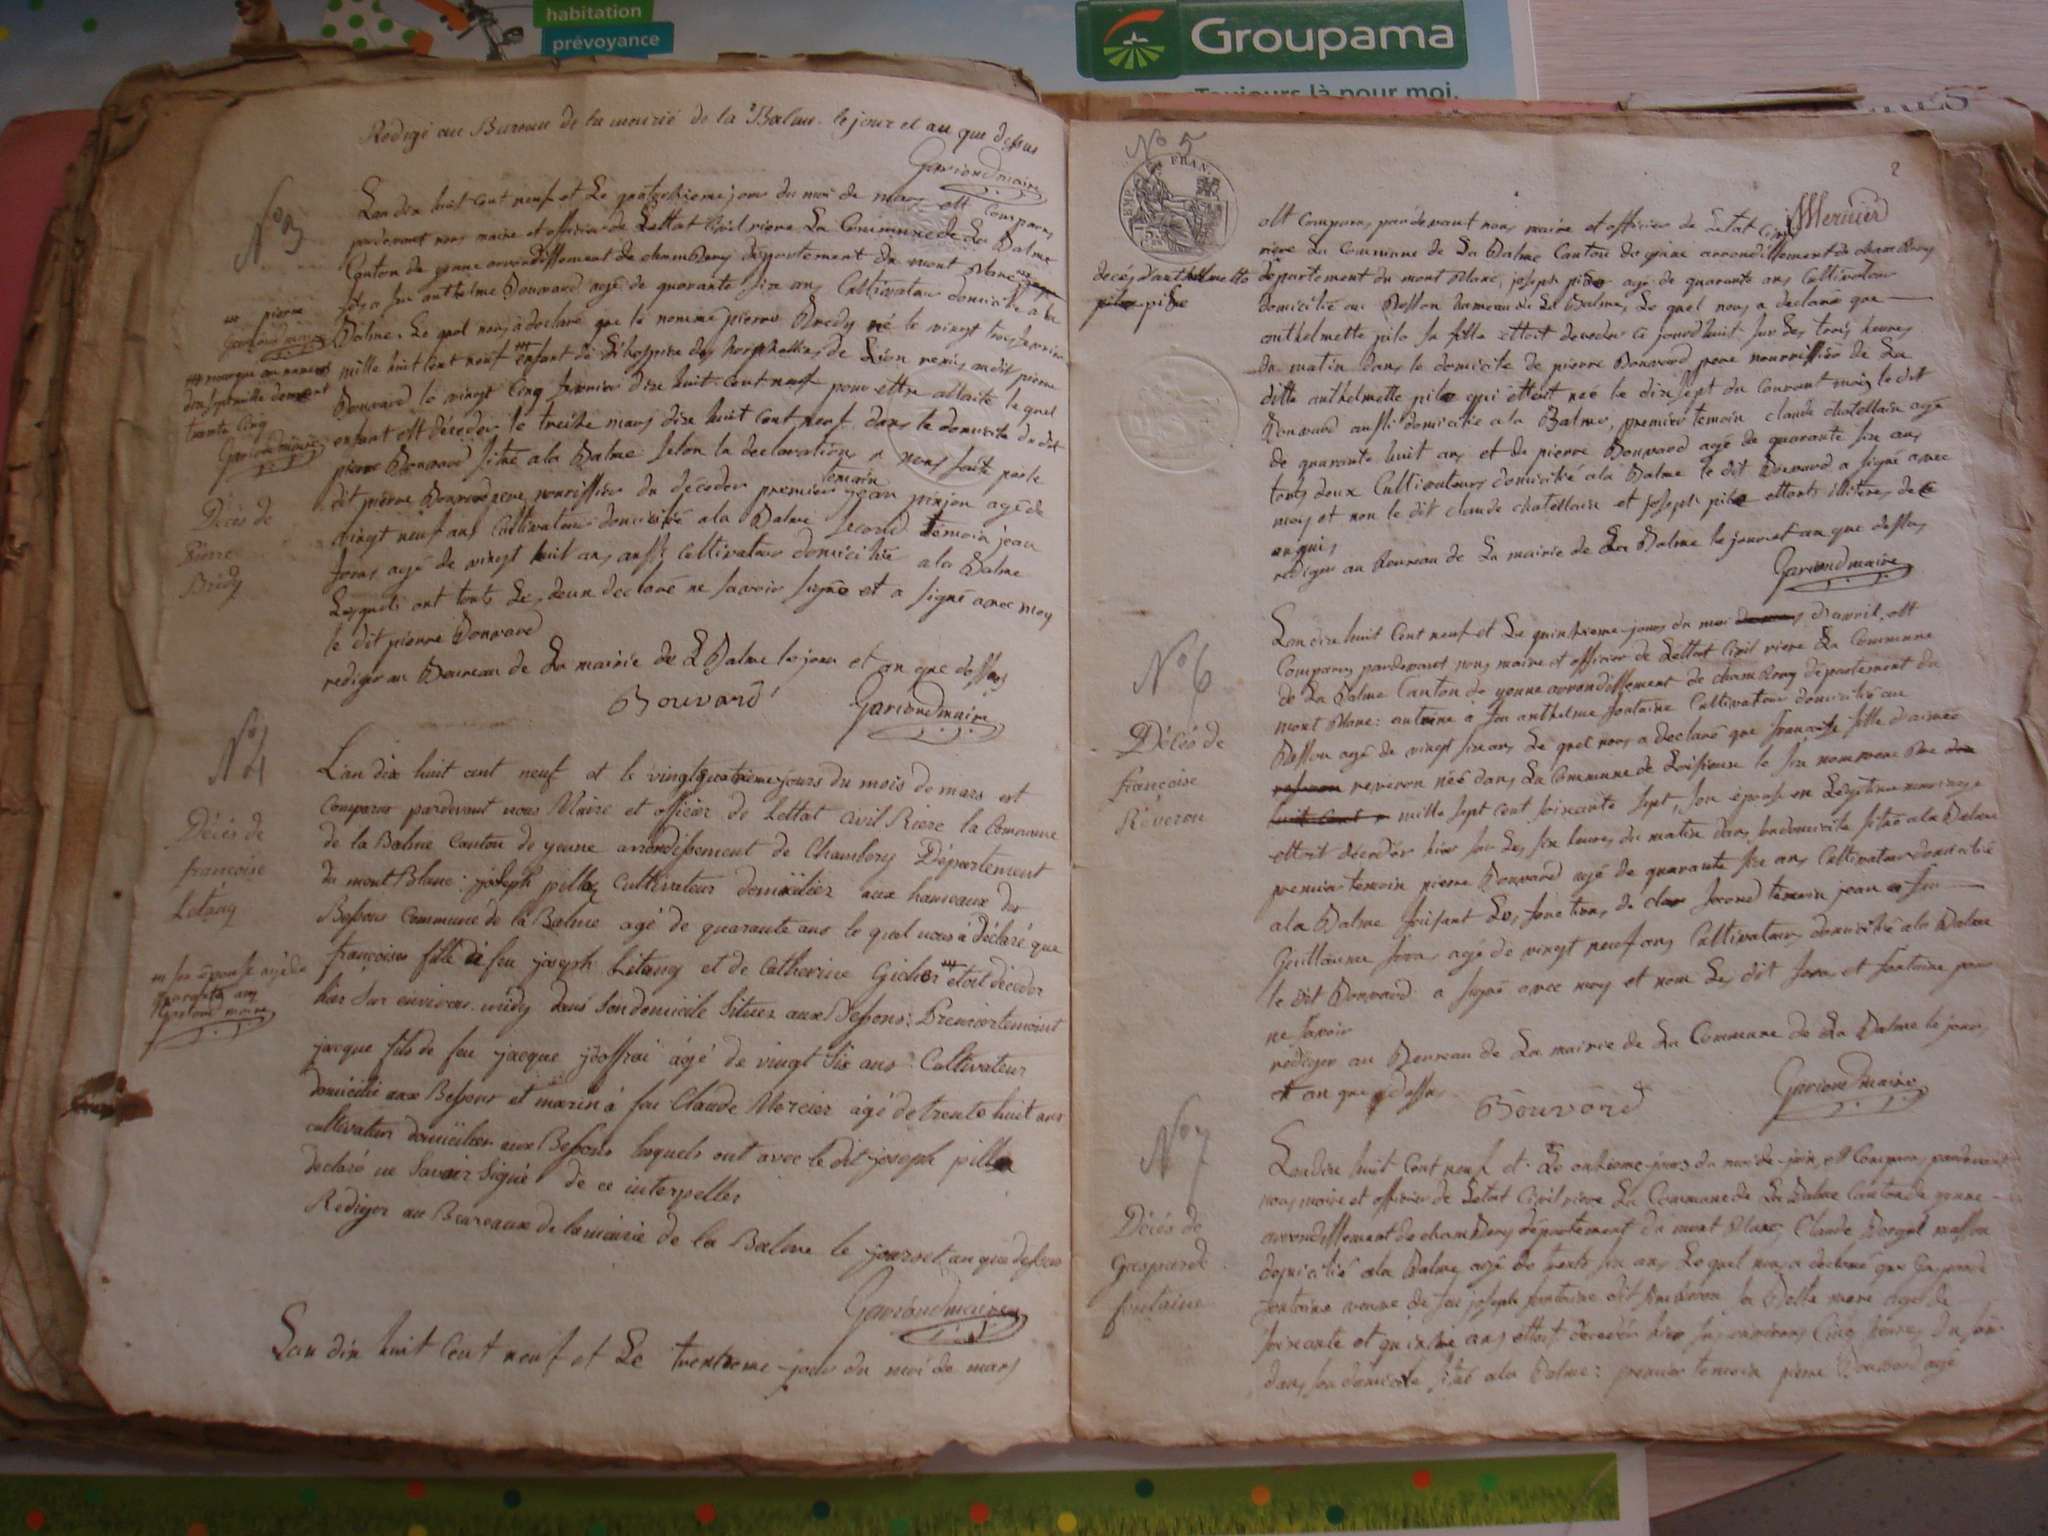 habitation
prévoyance
Groupama
Toujours là pour moi.
Redigé au Bureau de la meirié de la Balme le jour et an que dessus
Gariond maire
N° 3
L'an dix huit Cent neuf et Le quatorzieme jour du moi de mars est Comparus
pardevant nous maire et officier de Lettat Civil riere La Commune de La Balme
Canton de yenne arrondissement de chamBery département du mont Blanc
feu anthelme Bouvard agé de quarante six ans Cultivateur domicilié a la
Balme. Le quel nous a déclaré que le nommé pierre Bredy né le vingt trois fevrier
mille huit cent neuf enfant de L'hospice des horphelins de Lion remis audit pierre
Bouvard le vingt Cinq fevrier dix huit cent neuf pour ettre allaité le quel
enfant est décéder le treize mars dix huit Cent neuf dans le domicile du dit
pierre Bouvard sitné a la Balme selon la declaration a nous fait par le
dit pierre Bouvard pere nourissier du décéder premier temoin jean pinjon agé de
vingt neuf ans Cultivateur domicilié a la Balme second temoin jean
agé de vingt huit ans aussi Cultivateur domicilié a la Balme
Lesquels ont touts Les deux declaré ne savoir signé et a signé avec moy
le dit pierre Bouvard
rediger au Boureau de La mairie de L Balme le jour et an que dessus
Bouvard
Gariond maire
pierre
Gariond maire
trante Cinq
Gariond maire
Décès de
Pierre
Bridy
N° 4
Décés de
françoise
Létang
son épouse agé de
quarante ans
Gariond maire
L'an dix huit cent neuf et le vingtquatrieme jours du mois de mars est
Comparus pardevant nous Maire et officier de Lettat Civil Riere la Commune
de la Balme Canton de yenne arrondissement de Chambery Département
du mont Blanc: joseph pillo Cultivateur domicilier aux hameaux des
Bessons Commune de la Balme agé de quarante ans le quel nous à déclaré que
françoise fille à feu joseph Létang et de Catherine étoit décéder
hier sur environs midy dans son domicile situer aux Bessons: Premier temoint
jacque fils de feu jacque joffrai âgé de vingt six ans Cultivateur
domicilié aux Bessons et marin à feu Claude Mercier âgé de trente huit ans
cultivateur domicilier aux Bessons lesquels ont avec le dit joseph pillo
declaré ne savoir signé de ce interpeller
Rediger au Bureaux de la mairie de la Balme le jour et an que dessus
Gariond maire
Lan dix huit Cent neuf et Le trentieme jour du moi de mars
N° 5
EMP FRAN
2
Mercier
decés d'anthelmette
pilo
est Comparus pardevant nous maire et officier de Letat Civil
riere La Commune de La Balme Canton de yenne arrondissement de chamBery
département du mont Blanc, joseph pilo agé de quarante ans Cultivateur
domicilié au Besson hameau de La Balme, Le quel nous a declaré que
anthelmette pilo sa fille ettoit decedée ce jourdhuit sur Les trois heures
du matin dans le domicile de pierre Bouvard pere nourrissier de La
ditte anthelmette pilo qui ettoit neé le dixsept du Courant mois le dit
Bouvard aussi domicilié a la Balme, premier temoin claude chatellain agé
de quarante huit ans et de pierre Bouvard agé de quarante six ans
touts deux Cultivateurs domicilié a la Balme le dit Bouvard a signé avec
moy et non le dit claude chatellain et joseph pilo ettants illitérés de ce
enquis
rediger au Boureau de La mairie de La Balme le jour et an que dessus
Gariond maire
N° 6
Décés de
françoise
Réveron
Lan dix huit Cent neuf et Le quinzieme jour du moi d'avril, est
Comparus pardevant nous maire et officier de Lettat Civil riere La Commune
de La Balme Canton de yenne arrondissement de chamBery département du
mont Blanc: antoine à feu anthelme fontaine Cultivateur domicilié au
Besson agé de vingt six ans Le quel nous a declaré que francoise fille d'aimée
reveron née dans La Commune de Loisieux le six
mille sept cent soixante sept, son épouse en Legitime mariage
ettoit décedée hier sur Les six heures du matin dans son domicile sitné a la Balme
premier temoin pierre Bouvard agé de quarante six ans Cultivateur domicilié
a la Balme Les second temoin jean a feu
Guillaume agé de vingt neuf ans Cultivateur domicilié a la Balme
le dit Bouvard a signé avec moy et non Les dit et fontaine pour
ne savoir
rediger au Boureau de La mairie de La Commune de La Balme le jour
et an que dessus
Bouvard
Gariond maire
N° 7
Décés de
Gasparde
fontaine
Lan dix huit Cent neuf et Le onzieme jours du moi de juin, est Comparus pardevant
nous maire et officier de Letat Civil riere La Commune de La Balme Canton de yenne
arrondissement de chamBery département du mont Blanc, Claude
domicilié a la Balme agé de trente six ans Lequel nous a declaré que Gasparde
fontaine veuve de feu joseph fontaine dit sa Belle mere agée de
soixante et quinze ans ettoit decedée hier sur environs Cinq heures du soir
dans son domicile sitné a la Balme: premier temoin pierre Bouvard agé